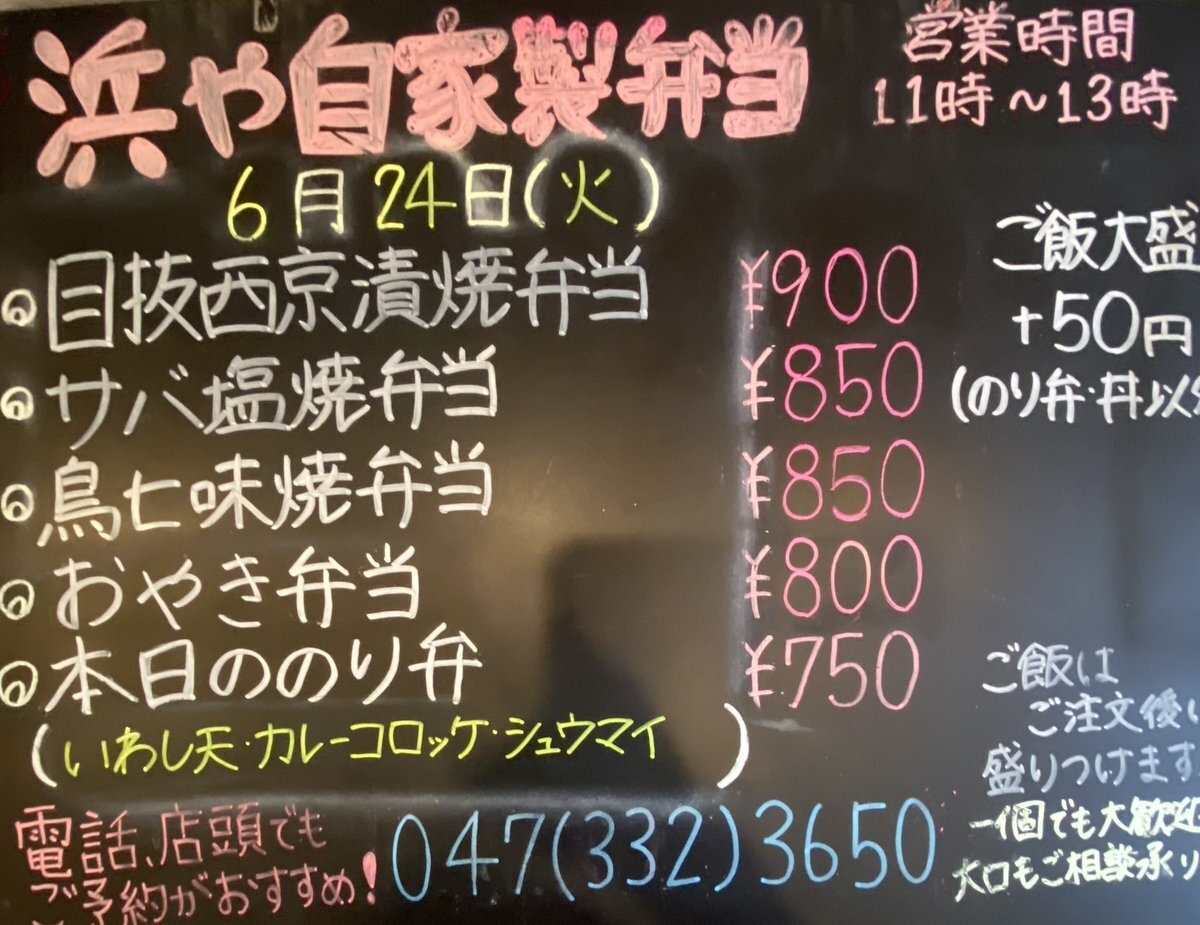 浜や自家製弁当
営業時間
11時～13時
6月24日(火)
目抜西京漬焼弁当 ¥900
サバ塩焼弁当 ¥850
鳥七味焼弁当 ¥850
おやき弁当 ¥800
本日ののり弁 ¥750
(いわし天・カレーコロッケ・シュウマイ)
ご飯大盛
+50円
(のり弁・丼以
ご飯は
ご注文後
盛りつけます
一個でも大歓迎
大口もご相談承り
電話、店頭でも
ご予約がおすすめ!
047(332)3650